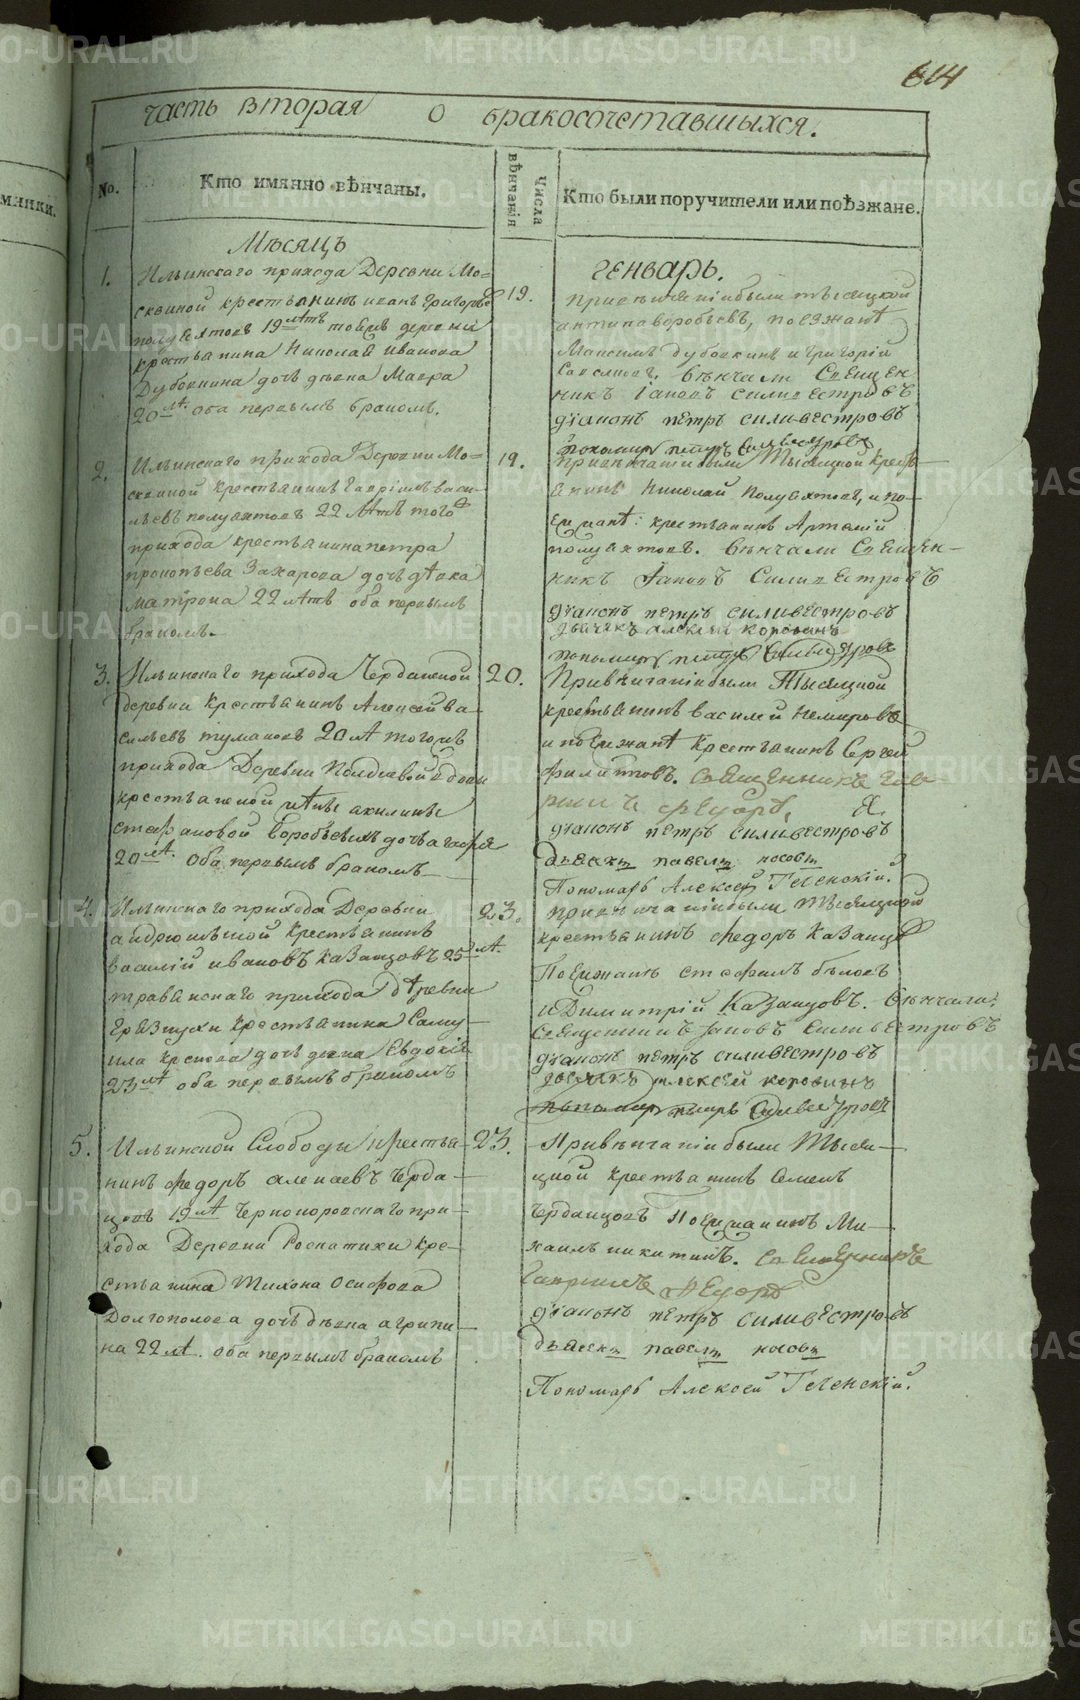 614
часть вторая о бракосочетавшыхся.
No.
Кто имянно вѣнчаны.
Числа вѣнчанія
Кто были поручители или поѣзжане.
Мѣсяцъ
генварь.
1.
Ильинскаго прихода Деревни Мо=
сквиной крестьянинъ иванъ григорьевъ
полуехтовъ 19 лѣтъ тоеже деревни
крестьянина Николая Иванова
Дубовкина дочь девка Мавра
20 лѣ. оба первымъ бракомъ.
19.
привѣнчаніи были тысяцкой
антипа воробьевъ, поезжанѣ
Максимъ дубовкинъ и григорій
вѣнчали Священ
никъ Іановъ силивестровъ
діаконъ петръ силивестровъ
пономарь петръ Силвестровъ
2.
Ильинскаго прихода Деревни Мо=
сквиной Крестьянинъ гаврiилъ васи-
льевъ полуехтовъ 22 лѣтъ того
прихода крестьянина петра
прокопьева Захарова дочь дѣвка
матрона 22 лѣтъ оба первымъ
бракомъ.
19.
привѣнчаніи были Тысяцкой Кресть
янинъ Николай Полуехтовъ, и по-
езжанѣ: крестьянинъ Артемій
полуехтовъ. вѣнчали Священ-
никъ Іановъ Силивестровъ
діаконъ петръ силивестровъ
дьячекъ алексей коровинъ
пономарь петръ Силвестровъ
3.
Ильинскаго прихода Черданской
деревни Крестьянинъ Алексей ва-
сильевъ тумановъ 20 лѣ тогожъ
прихода Деревни
крестьянской акилины
стефановой воробьевыхъ дочь
20 лѣ. Оба первымъ бракомъ
20.
Привѣнчаніи были Тысяцкой
крестьянинъ василей немировъ
и поезжанѣ Крестьянинъ Сергей
филитовъ. священникъ гав
рiилъ федоровъ
діаконъ петръ силивестровъ
дьячекъ павелъ носовъ
Пономарь Алексей Геленскій.
4.
Ильинскаго прихода Деревни
андрюшиной Крестьянинъ
василій ивановъ Казанцовъ 25 лѣ.
травянскаго прихода деревни
крестьянина Саму-
ила дочь девка Евдокія
23 лѣ оба первымъ бракомъ
23.
привѣнчаніи были тысяцкой
крестьянинъ федоръ Казанцо
Поезжанъ стефанъ бѣловъ
и Димитрій Казанцовъ. вѣнчали.
Священникъ Іановъ Силивестровъ
діаконъ петръ силивестровъ
дьячекъ алексей коровинъ
пономарь петръ Силвестровъ
5.
Ильинской Слободы крестья
нинъ федоръ алексеевъ Черда-
цовъ 19 лѣ Чернокоровскаго при-
хода Деревни Роспатихи Кре-
стьянина Тихона Осифова
Долгополова дочь девка агрипи-
на 22 лѣ. оба первымъ бракомъ
23.
Привѣнчаніи были Тысе-
цкой Крестьянинъ Семенъ
Черданцовъ Поезжанинъ Ми-
хаилъ никитинъ. священникъ
гаврiилъ федоровъ
діаконъ петръ силивестровъ
дьячекъ павелъ носовъ
Пономарь Алексей Геленскій.
METRIKI.GASO-URAL.RU